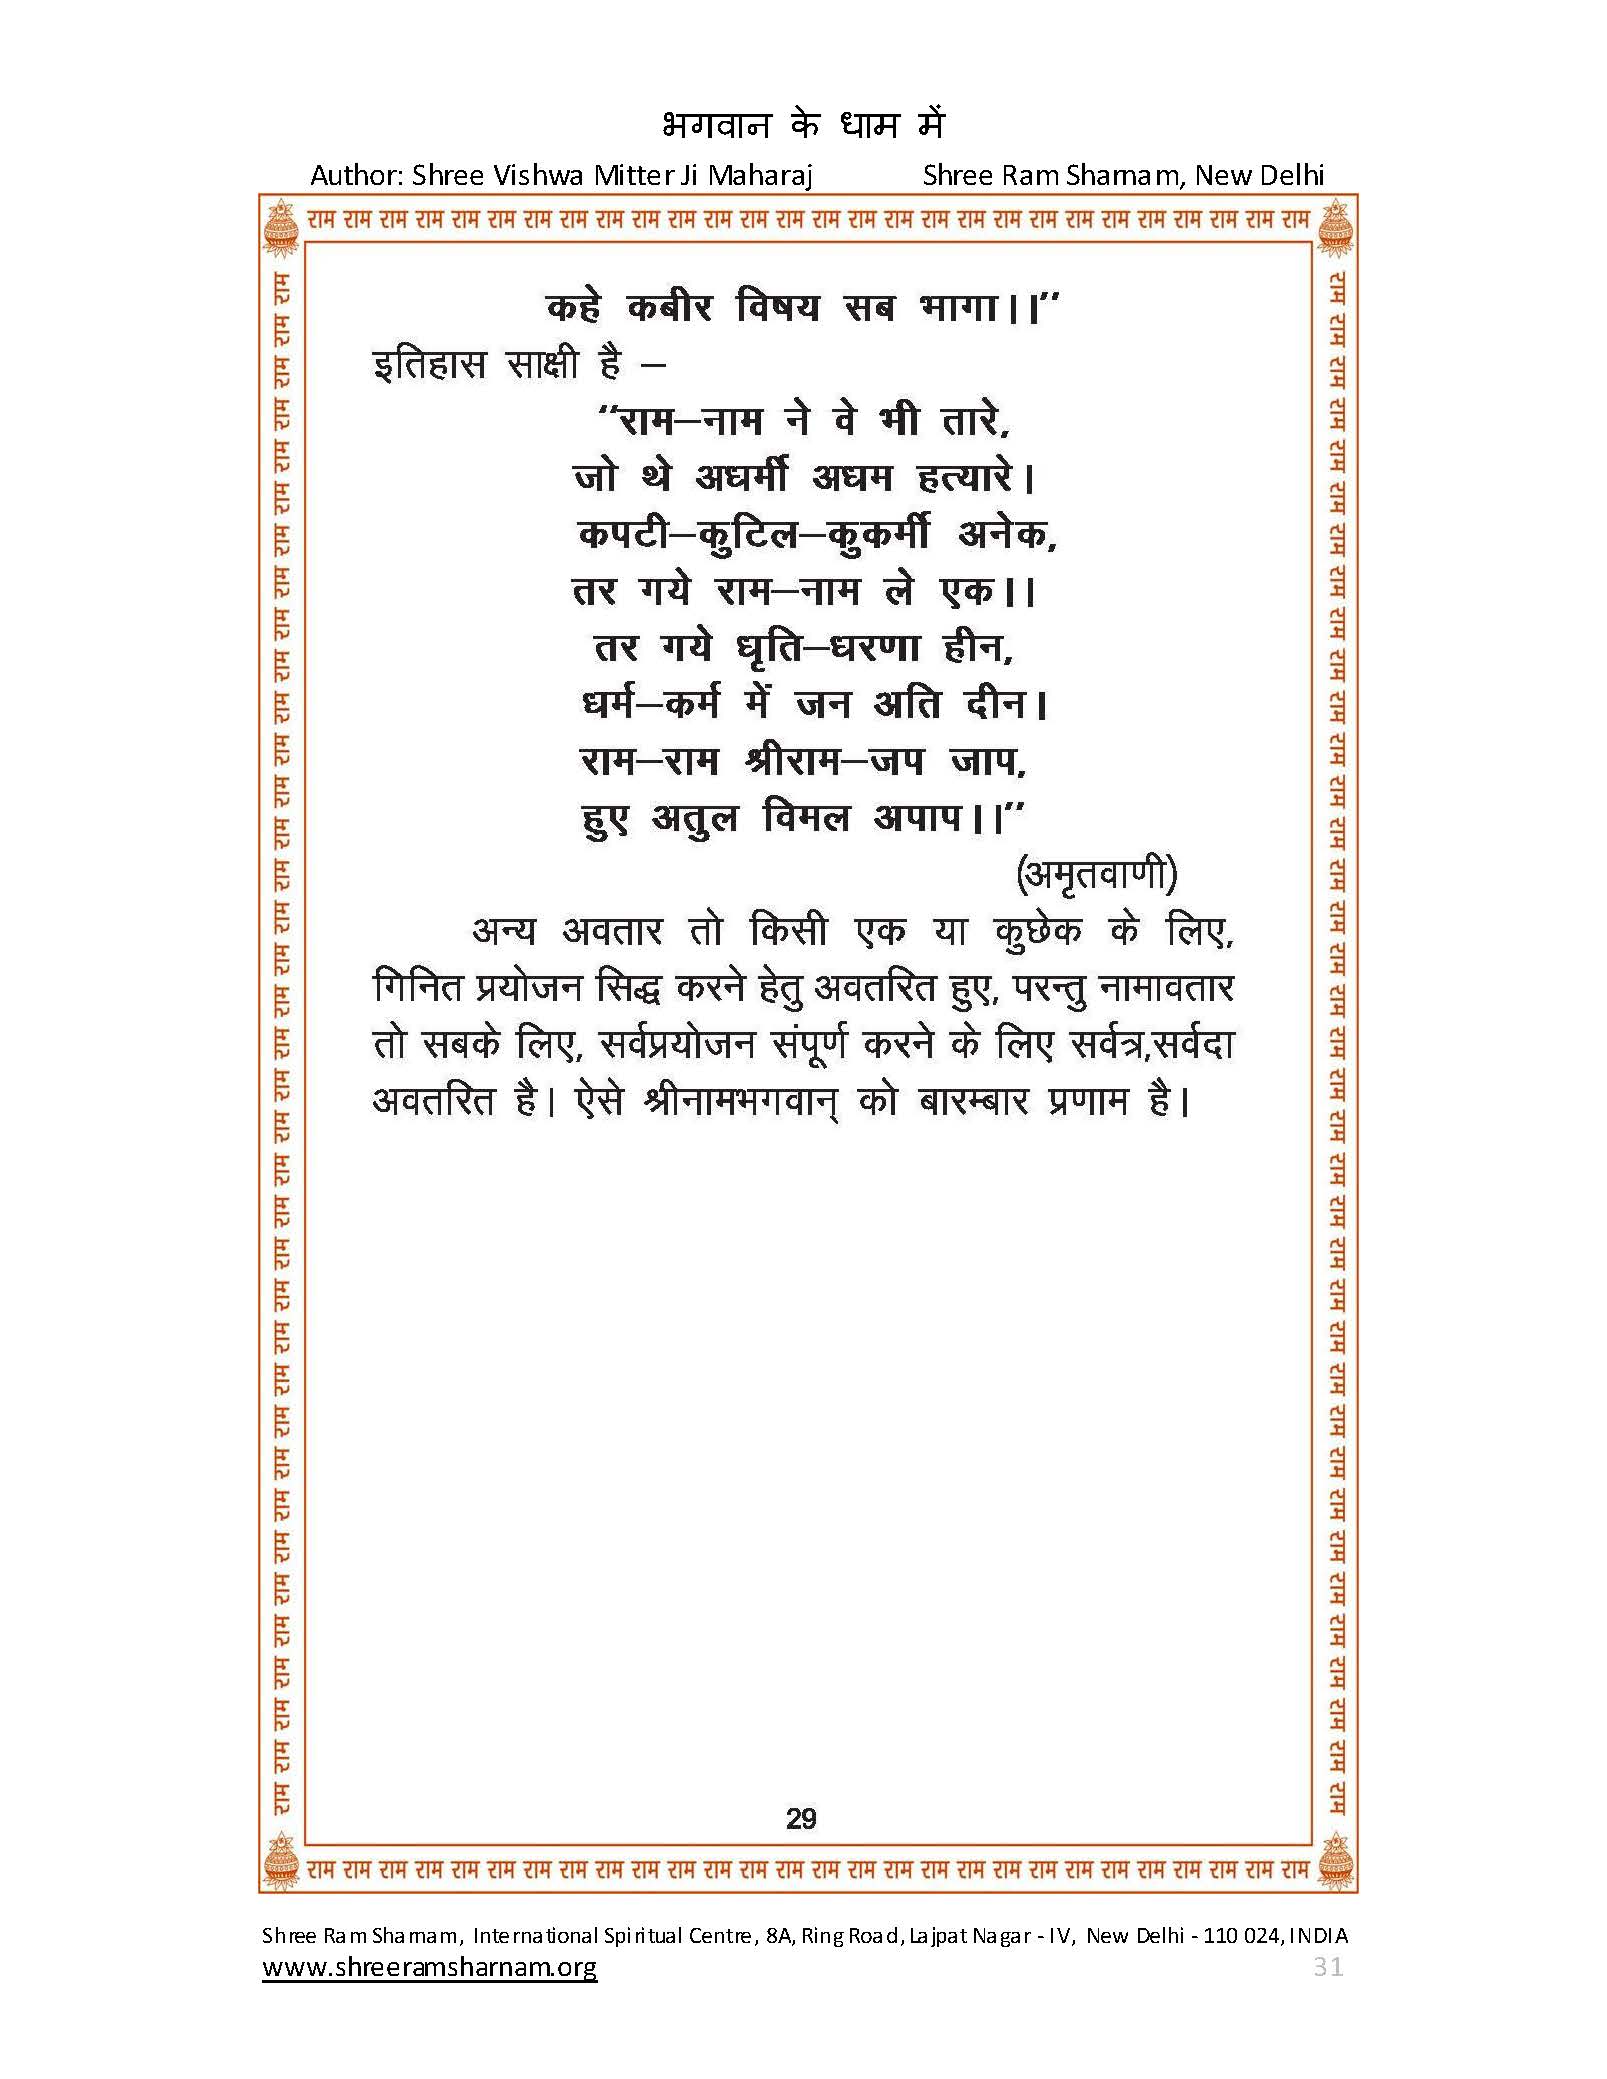 भगवान के धाम में
Author: Shree Vishwa Mitter Ji Maharaj Shree Ram Sharnam, New Delhi
राम राम राम राम राम राम राम राम राम राम राम राम राम राम राम राम राम राम राम राम राम राम राम राम राम राम राम राम
कहे कबीर विषय सब भागा।।”
इतिहास साक्षी है –
“राम–नाम ने वे भी तारे,
जो थे अधर्मी अधम हत्यारे।
कपटी–कुटिल–कुकर्मी अनेक,
तर गये राम–नाम ले एक।।
तर गये धृति–धरणा हीन,
धर्म–कर्म में जन अति दीन।
राम–राम श्रीराम–जप जाप,
हुए अतुल विमल अपाप।।”
(अमृतवाणी)
अन्य अवतार तो किसी एक या कुछेक के लिए,
गिनित प्रयोजन सिद्ध करने हेतु अवतरित हुए, परन्तु नामावतार
तो सबके लिए, सर्वप्रयोजन संपूर्ण करने के लिए सर्वत्र,सर्वदा
अवतरित है। ऐसे श्रीनामभगवान् को बारम्बार प्रणाम है।
29
राम राम राम राम राम राम राम राम राम राम राम राम राम राम राम राम राम राम राम राम राम राम राम राम राम राम राम राम
Shree Ram Sharnam, International Spiritual Centre, 8A, Ring Road, Lajpat Nagar - IV, New Delhi - 110 024, INDIA
www.shreeramsharnam.org 31